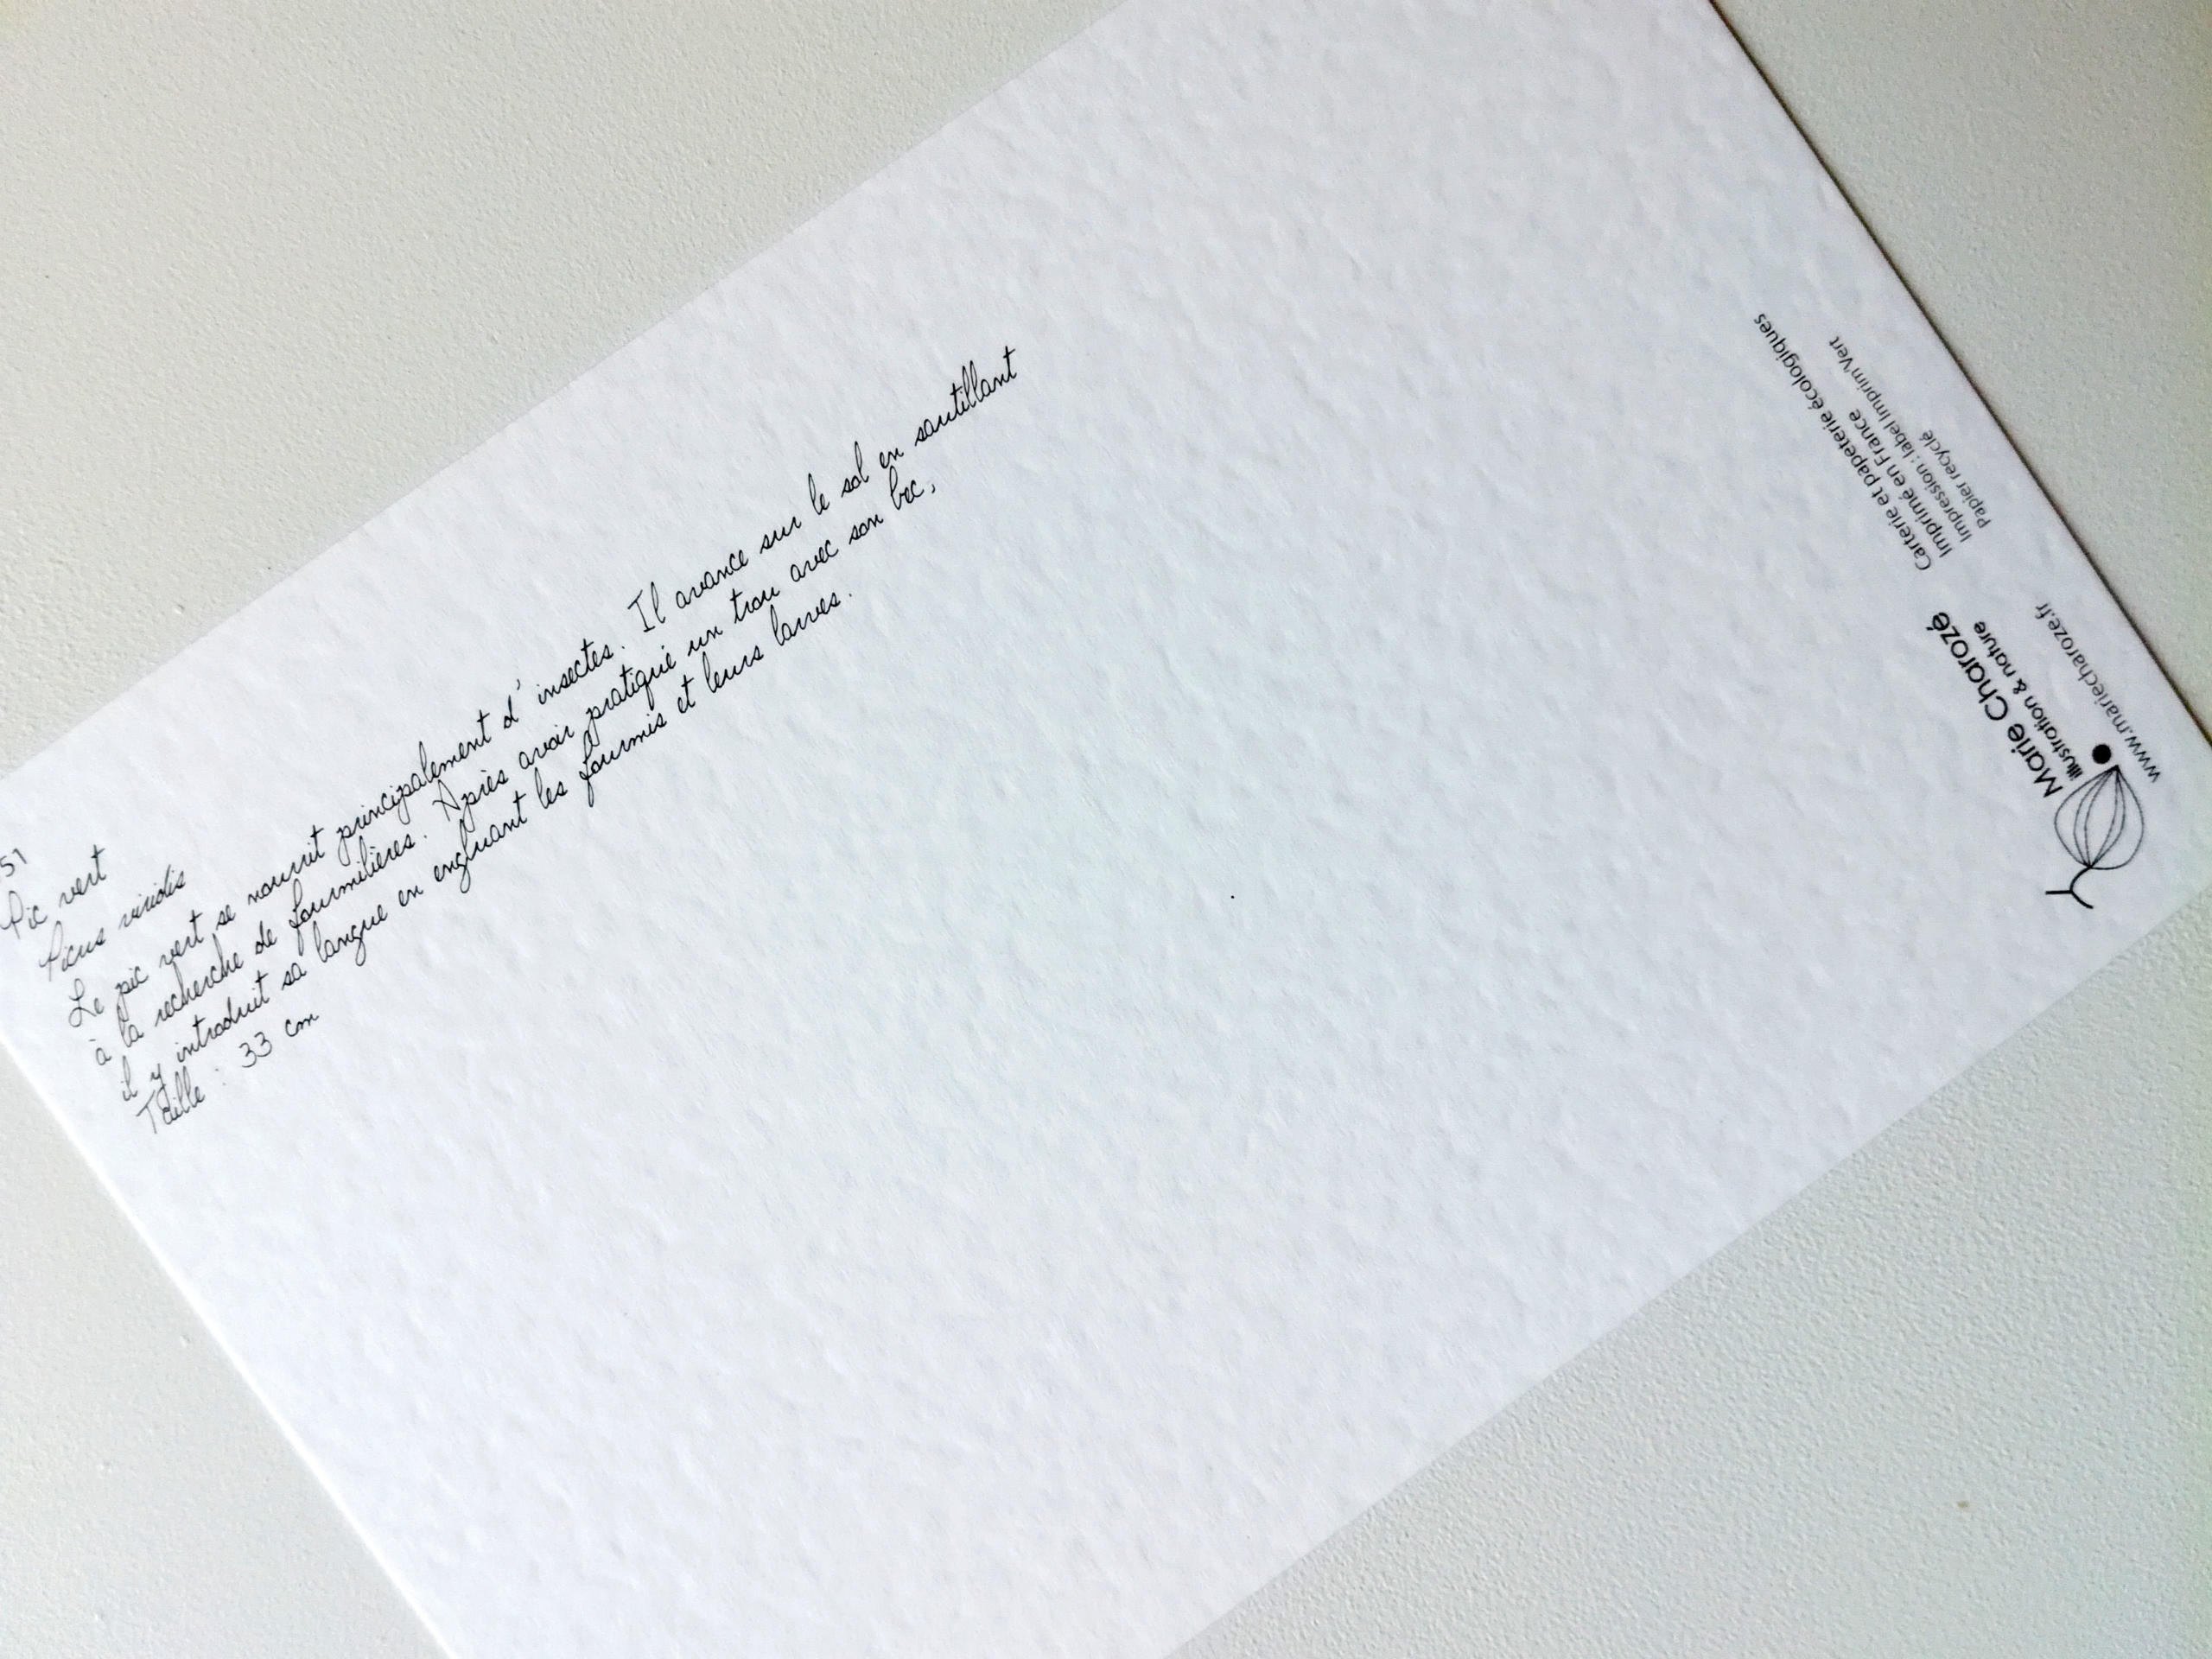 51
Pic vert
Picus viridis
Le pic vert se nourrit principalement d'insectes. Il avance sur le sol en sautillant
à la recherche de fourmilières. Après avoir pratiqué un trou avec son bec,
il y introduit sa langue en engluant les fourmis et leurs larves.
Taille : 33 cm
Marie Charozé
illustration & nature
www.mariecharoze.fr
Carterie et papeterie écologiques
Imprimé en France
Impression : label Imprim'Vert
Papier recyclé